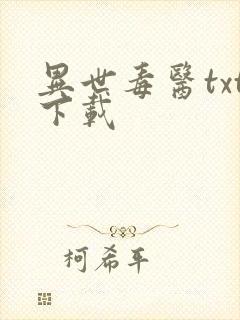 異世毒醫txt
下載
柯希平